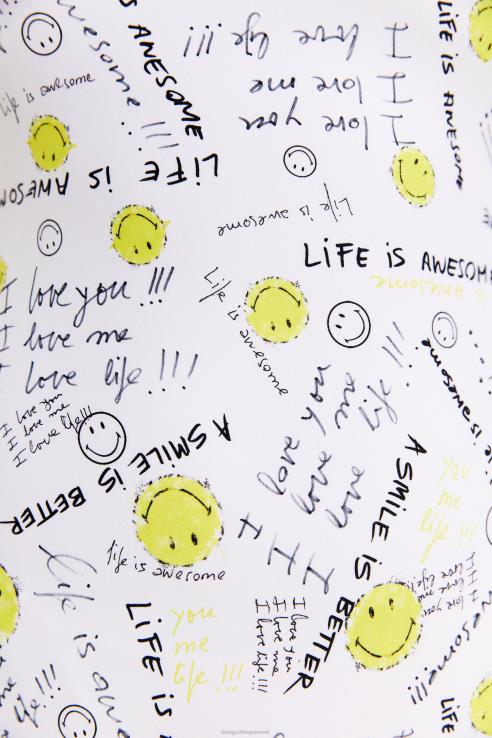 Life is awesome
is AWESOME
awesome !!!
I love you
I love me
I love life !!!
LiFE is AWESOME
LiFE is AWESOME
Life is awesome
LiFE is AWESOME
is awesome
I love you !!!
I love me
I love life !!!
Life is awesome
I love you
I love me
I love life !!!
A SMILE IS BETTER
I love you
I love me
I love life !!!
is awesome
A SMILE IS BETTER
you
me
life !!!
life is awesome
Life is awesome
LiFE is
you
me
life !!!
I love you
I love me
I love life !!!
I love you
I love me
I love life !!!
awesome !!!
life !!!
LiFE is